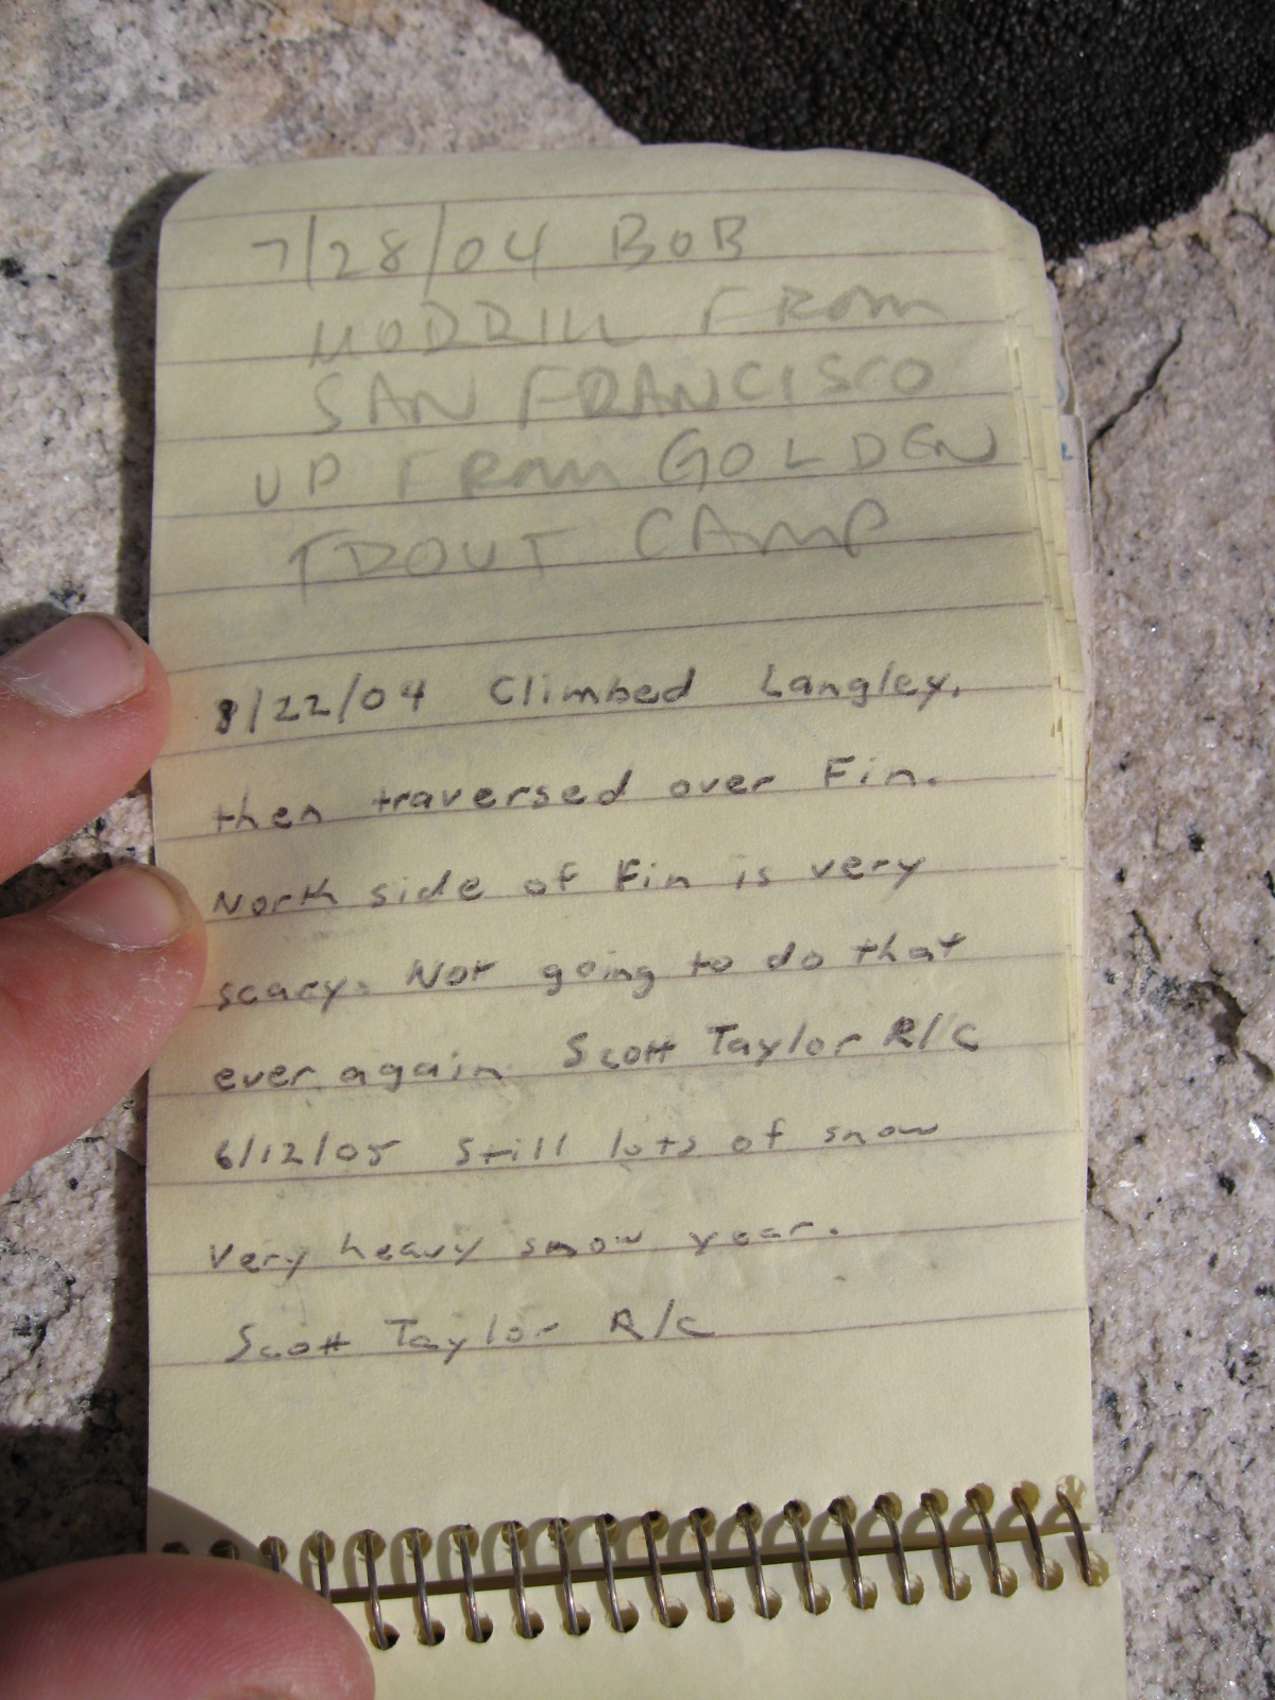 7/28/04 BOB
MORRILL FROM
SAN FRANCISCO
UP FROM GOLDEN
TROUT CAMP
8/22/04 Climbed Langley,
then traversed over Fin.
North side of Fin is very
scary. Not going to do that
ever again Scott Taylor R/C
6/12/05 Still lots of snow
Very heavy snow year.
Scott Taylor R/C